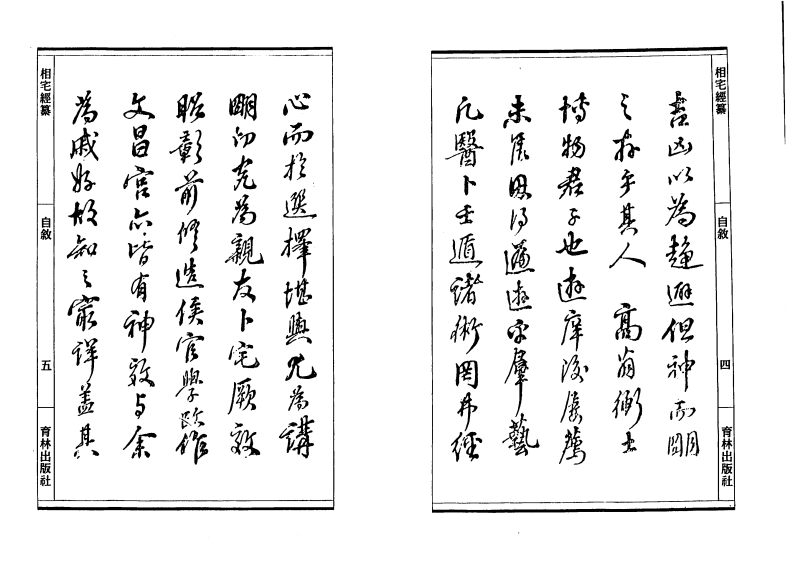 相宅經纂
自敘
四
育林出版社
吉凶以為趨避但神而明
之存乎其人 高翁衡士
博物君子也遊庠後屢薦
未售思得遍遊乎羣藝
凡醫卜壬遁諸術罔弗經
心而於選擇堪輿尤為講
明切究為親友卜宅厥效
昭彰前修造侯官學
文昌宮亦皆有神效与余
為戚好故知之最詳蓋其
相宅經纂
自敘
五
育林出版社